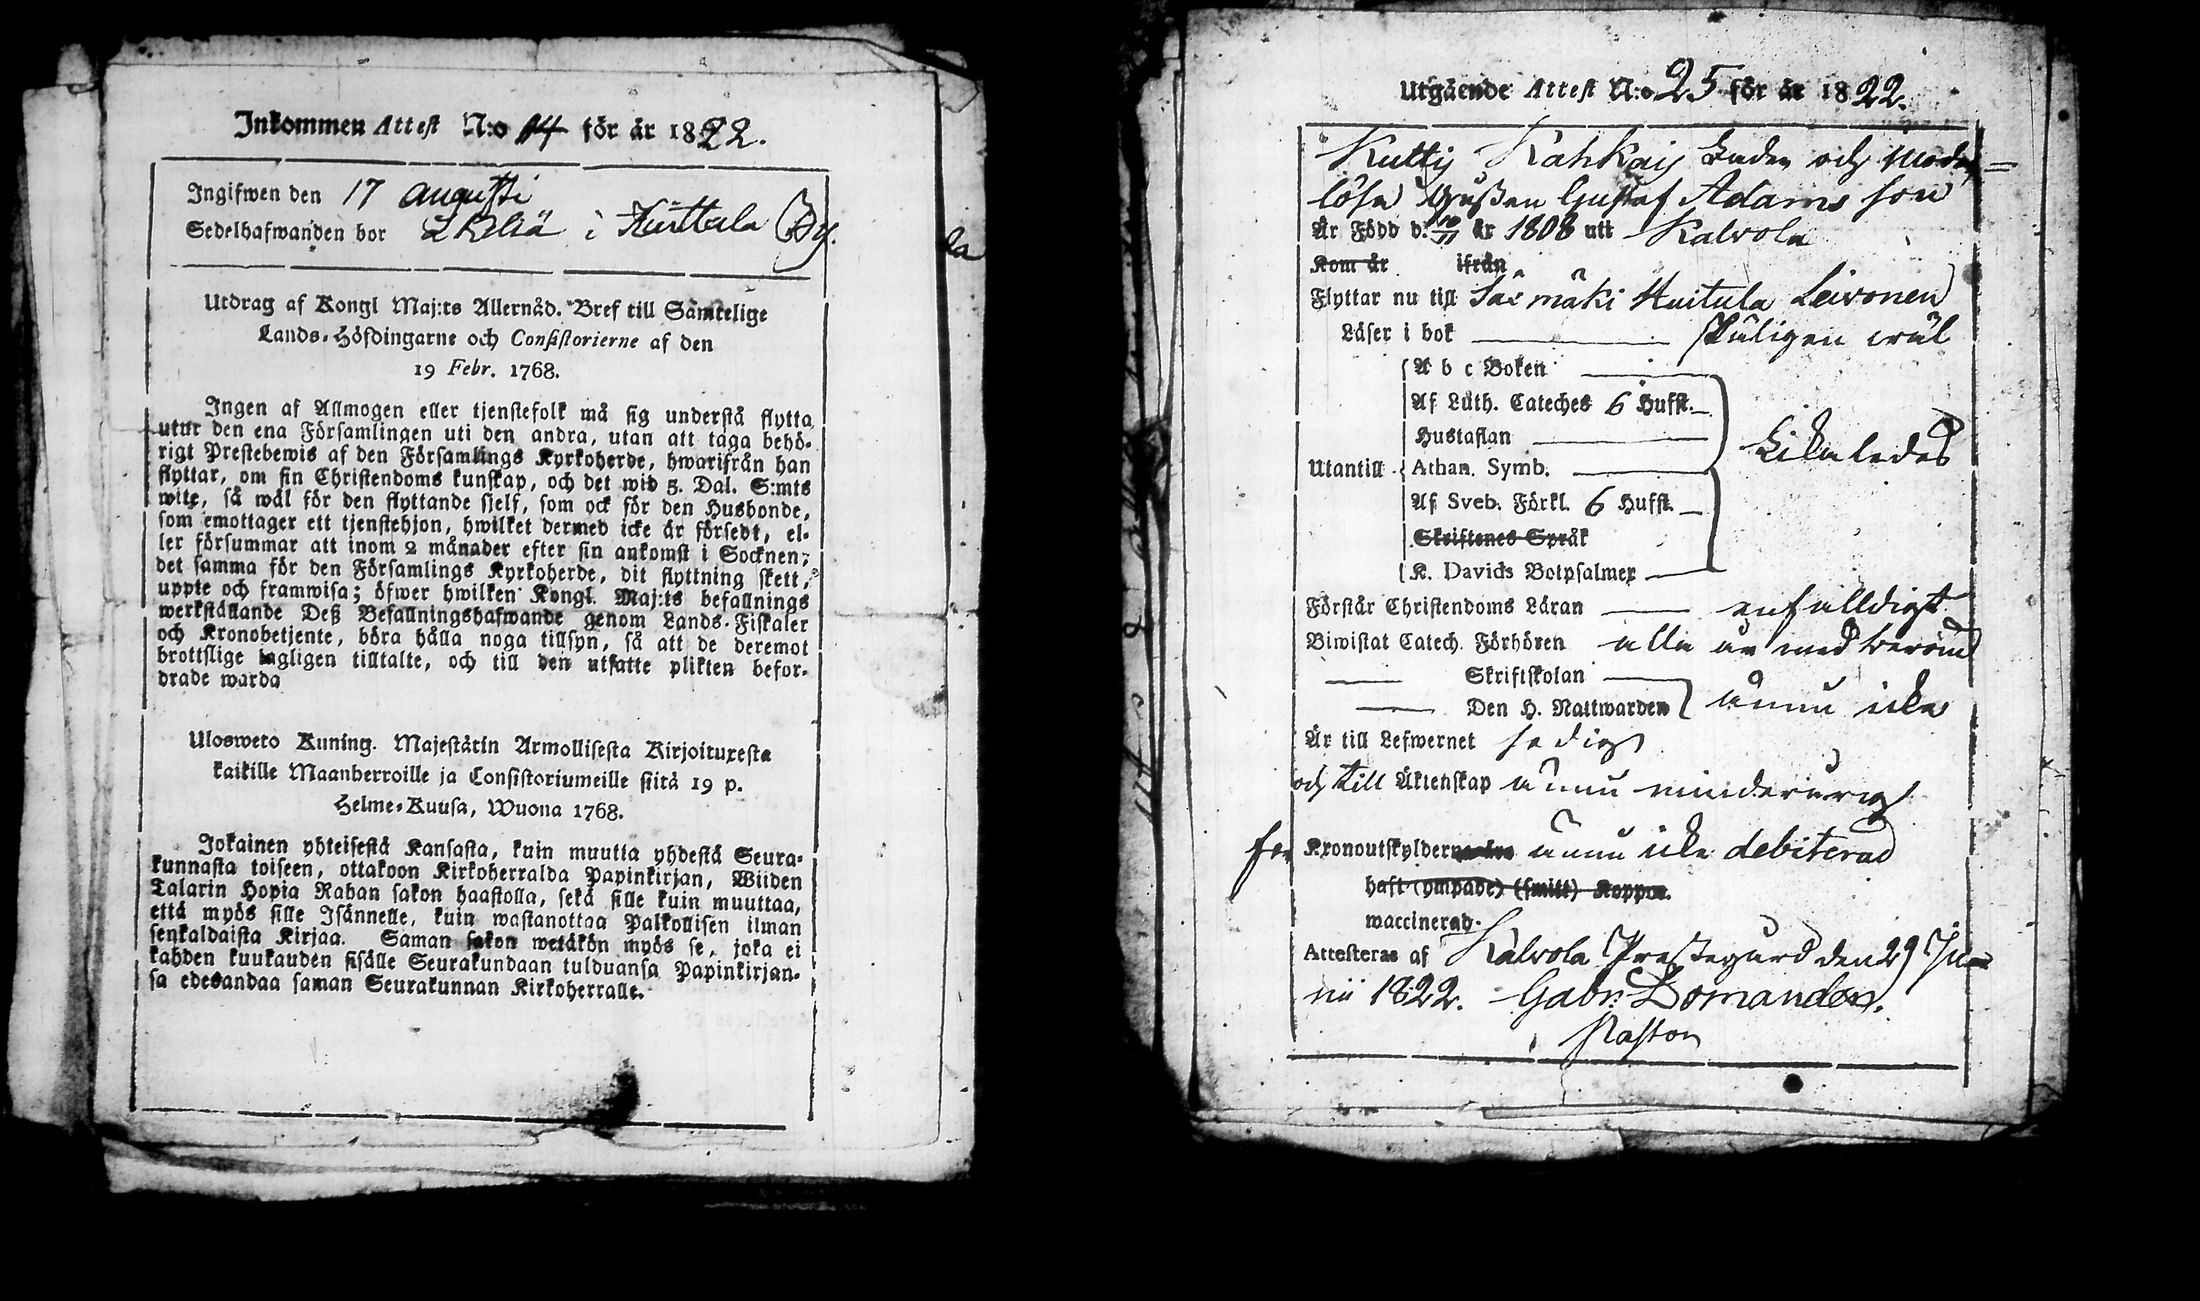 Inkommen Attest N:o 14 för år 1822.
Ingifwen den 17 augusti
Sedelhafwanden bor i Huittula By.
Utdrag af Kongl Maj:ts Allernåd. Bref till Samtelige
Lands-Höfdingarne och Consistorierne af den
19 Febr. 1768.
Ingen af Allmogen eller tjenstefolk må sig understå flytta
utur den ena Församlingen uti den andra, utan att taga behö-
rigt Prestebewis af den Församlings Kyrkoherde, hwarifrån han
flyttar, om sin Christendoms kunskap, och det wid 5. Dal. S:mts
wite, så wäl för den flyttande sjelf, som ock för den Husbonde,
som emottager ett tjenstehjon, hwilket dermed icke är försedt, el-
ler försummar att inom 2 månader efter sin ankomst i Socknen,
det samma för den Församlings Kyrkoherde, dit flyttning skett,
uppte och framwisa; öfwer hwilken Kongl. Maj:ts befallnings
werkställande Deß Befallningshafwande genom Lands-Fiskaler
och Kronobetjente, böra hålla noga tillsyn, så att de deremot
brottslige lagligen tilltalte, och till den utsatte plikten befor-
drade warda
Ulosweto Kuning. Majestätin Armollisesta Kirjoituxesta
kaikille Maanherroille ja Consistoriumeille siitä 19 p.
Helme-Kuusa, Wuona 1768.
Jokainen yhteisestä Kansasta, kuin muutta yhdestä Seura-
kunnasta toiseen, ottakoon Kirkoherralda Papinkirjan, Wiiden
Talarin Hopia Rahan sakon haastolla, sekä sille kuin muuttaa,
että myös sille Isännelle, kuin wastanottaa Palkollisen ilman
senkaldaista Kirjaa. Saman sakon wetäkön myös se, joka ei
kahden kuukauden sisälle Seurakundaan tulduansa Papinkirjan-
sa edesandaa saman Seurakunnan Kirkoherralle.
Utgående Attest N:o 25 för år 1822.
Kuttis Kahkais Enden och moder=
löse Gußen Gustaf Adams son
Är Född d. 10/11 år 1808 uti Kalvola
Kom år ifrån
Flyttar nu till Sääxmäki Huitula Leivonen
Läser i bok skäligen wäl
Utantill
A b c Boken
Af Luth. Cateches 6 Hufst.
Hustaflan
Athan. Symb.
Af Sveb. Förkl. 6 Hufst.
Skriftenes Språk
K. Davids Botpsalmer
Likaledes
Förstår Christendoms Läran enfalldigt
Biwistat Catech. Förhören alla år med beröm
Skriftskolan
Den H. Nattwarden
ännu icke
Är till Lefwernet sedig
och till Äktenskap ännu minderårig
för Kronoutskylderna ännu icke debiterad
haft (ympade) (smitt) Koppor.
waccinerad.
Attesteras af Kalvola Prestegård den 29 Ju-
nii 1822. Gabr: Domander.
Pastor